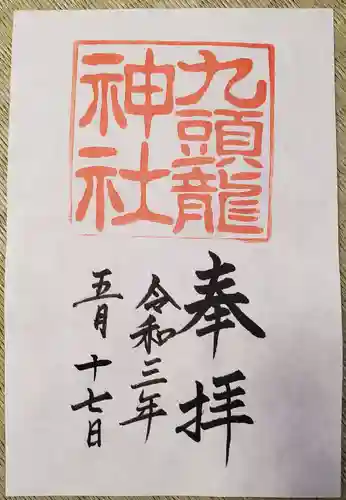 九頭龍
神社
奉拝
令和三年
五月十七日